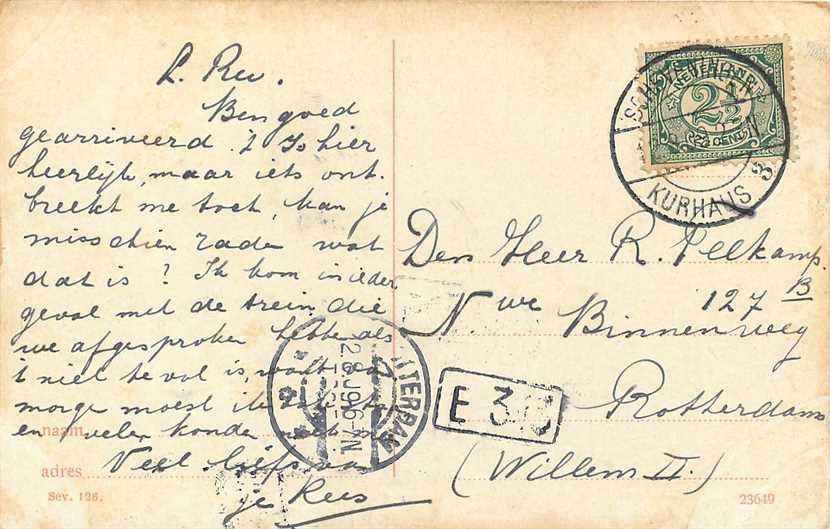 L. Rev.
Ben goed
gearriveerd. 't Is hier
heerlijk, maar iets ont-
breekt me toch, kan je
misschien rade wat
dat is? Ik kom in ieder
geval met de trein die
we afgesproken hebbe als
't niet te vol is, want
morge moest ik
en velen konde
Veel liefs van
je Kees
naam
adres
Sev. 126.
NEDERLAND
2½
CENT
SCHEVENINGEN
KURHAUS 3
Den Heer R. Pelkamp.
127 B
N.we Binnenweg
Rotterdam
(Willem II.)
E 3
23649